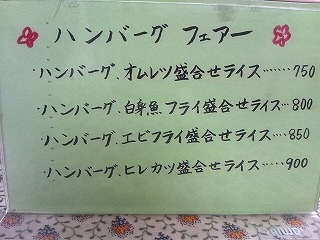 ハンバーグ フェアー
・ハンバーグ、オムレツ盛合せライス……750
・ハンバーグ、白身魚フライ盛合せライス…800
・ハンバーグ、エビフライ盛合せライス……850
・ハンバーグ、ヒレカツ盛合せライス……900